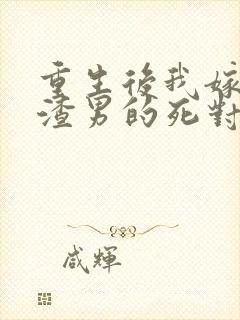 重生後我嫁
渣男的死對
咸輝